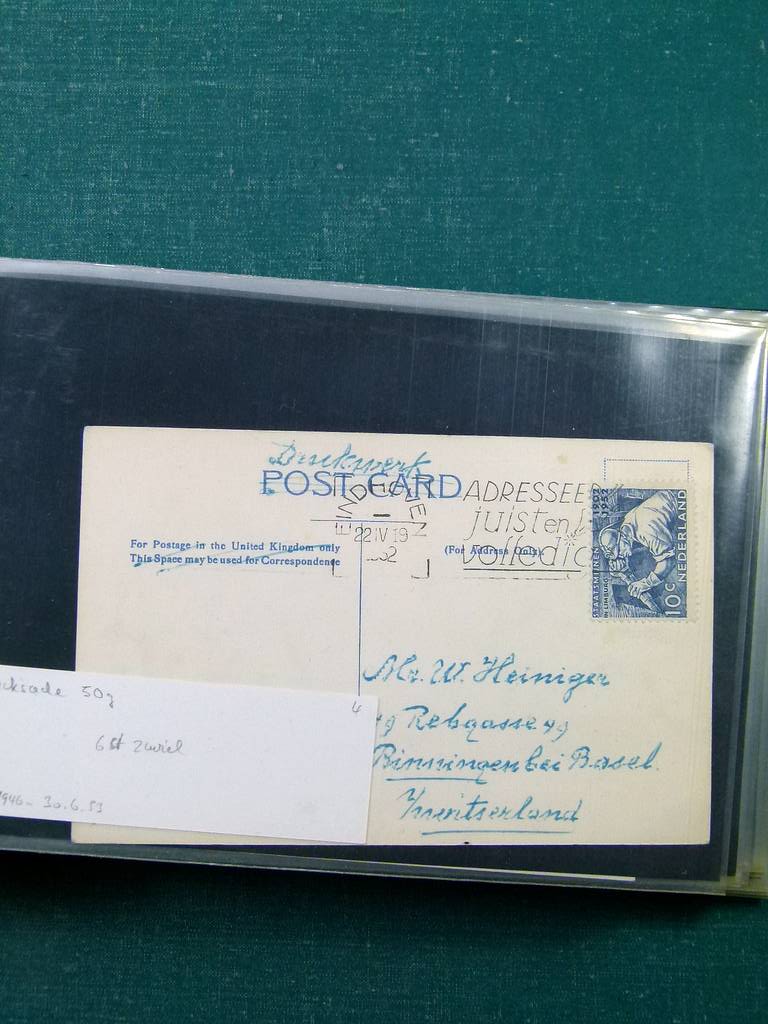 Drukwerk
POST CARD
EINDHOVEN
22 IV 19
52
ADRESSEER
juist en
volledig
For Postage in the United Kingdom only
This Space may be used for Correspondence
(For Address Only)
STAATSMIJNEN
IN LIMBURG
1902
1952
10 C
NEDERLAND
Mr. W. Heiniger
49 Rebgasse 49
Binningen bei Basel.
Zwitserland
50g
4
6 st
1946 - 30.6.53